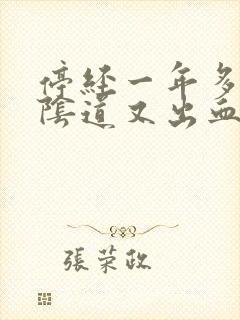 停經一年多
陰道又出血
張荣政